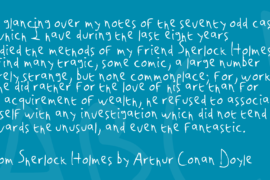 glancing over my notes of the seventy odd cas
which I have during the last eight years
died the methods of my friend Sherlock Holmes
find many tragic, some comic, a large number
rely strange, but none commonplace; for, work
he did rather for the love of his art than for
acquirement of wealth, he refused to associa
self with any investigation which did not tend
wards the unusual, and even the fantastic.
om Sherlock Holmes by Arthur Conan Doyle